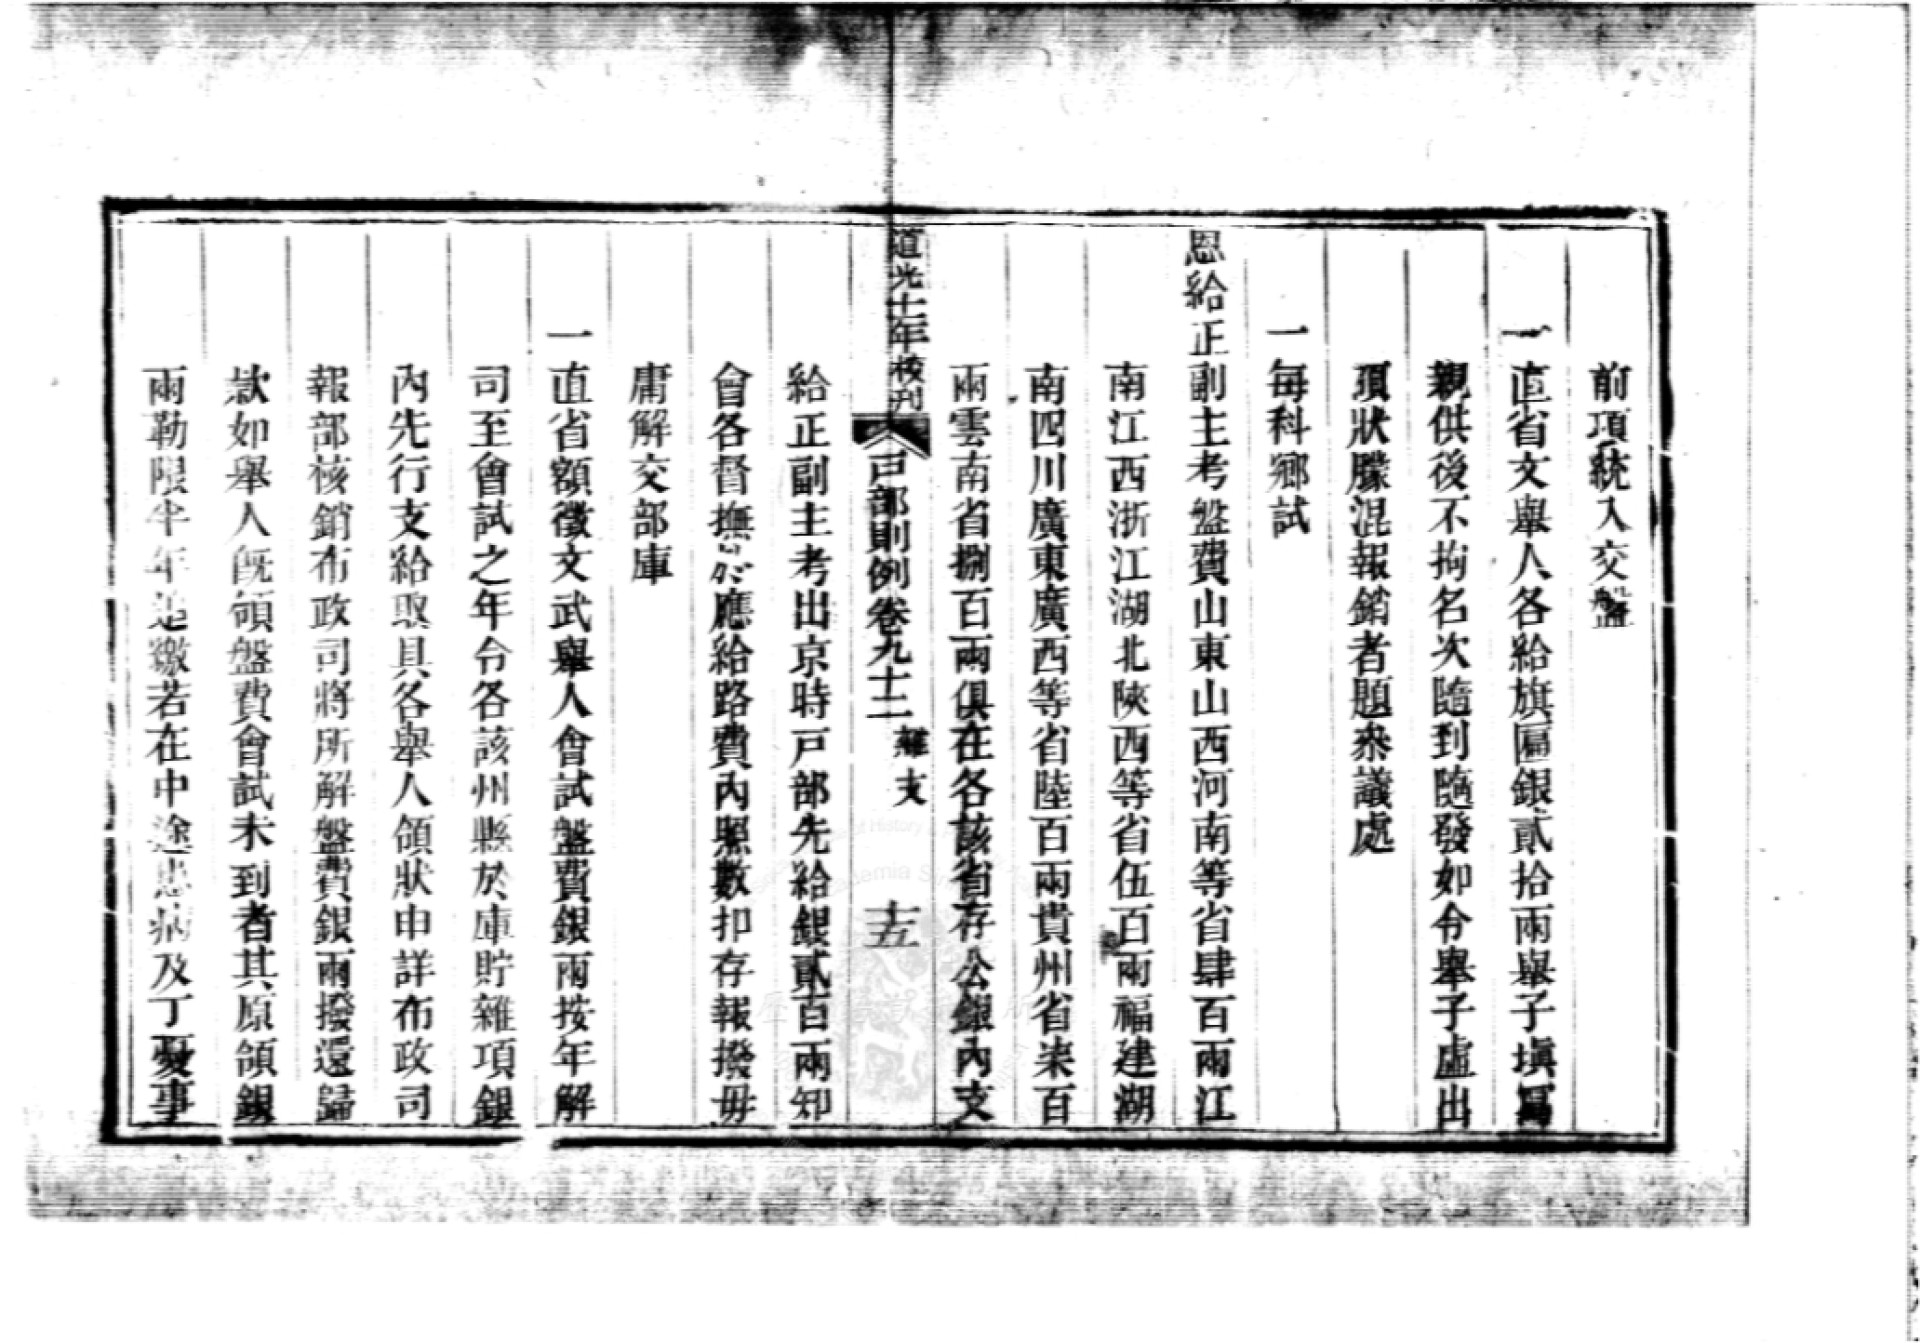 前項統入交盤
一直省文舉人各給旗匾銀貳拾兩舉子塡寫
親供後不拘名次隨到隨發如令舉子虛出
頂狀朦混報銷者題叅議處
一每科鄉試
恩給正副主考盤費山東山西河南等省肆百兩江
南江西浙江湖北陝西等省伍百兩福建湖
南四川廣東廣西等省陸百兩貴州省柒百
兩雲南省捌百兩俱在各該省存公銀內支
道光十一年校刊
戶部則例卷九十二 雜支 十五
給正副主考出京時戶部先給銀貳百兩知
會各督撫於應給路費內照數扣存報撥毋
庸解交部庫
一直省額徵文武舉人會試盤費銀兩按年解
司至會試之年令各該州縣於庫貯雜項銀
內先行支給取具各舉人領狀申詳布政司
報部核銷布政司將所解盤費銀兩撥還歸
款如舉人旣領盤費會試未到者其原領銀
兩勒限半年追繳若在中途患病及丁憂事